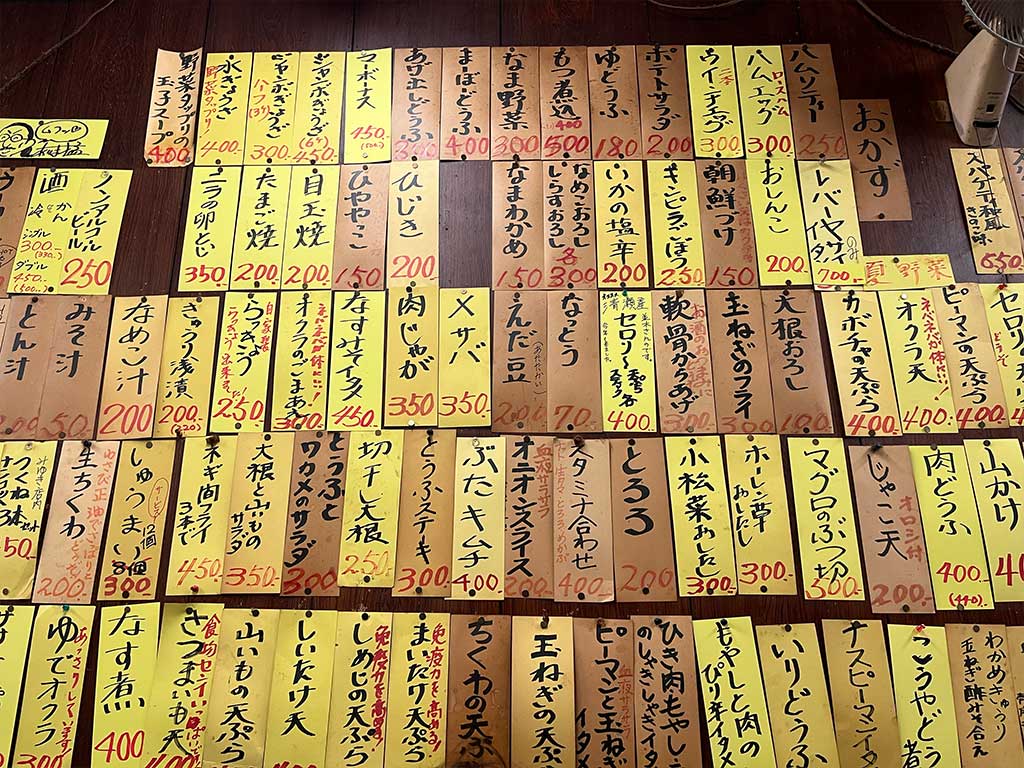 おかず
ハムソテー 250
ハムエッグ ロースハム 300
ウインナエッグ 二本 300
ポテトサラダ 200
ゆどうふ 180
もつ煮込 400 500
なま野菜 300
まーぼどうふ 400
あげ出しどうふ 300
ラーボナース 450
ジャンボぎょうざ (6ヶ) 450
ジャンボぎょうざ ハーフ (3ヶ) 300
水ぎょうざ 野菜タップリ! 400
野菜タップリの玉子スープ 400
レバーヤサイイタメ 700
おしんこ 200
朝鮮づけ 150
キンピラごぼう 250
いかの塩辛 200
なめこおろし しらすおろし 各300
なまわかめ 150
ひじき 200
ひややっこ 150
目玉焼 200
たまご焼 200
ニラの卵とじ 350
ノンアルコールビール 250
酒 冷 かん
シングル 300
ダブル 450
夏野菜
スパゲティ和風 きのこ味 550
セロリ
ピーマンの天ぷら 400
オクラ天 ネバネバが体にいい! 400
カボチャの天ぷら 400
大根おろし 100
玉ねぎのフライ 350
軟骨からあげ 300
セロリー天ぷら 400
なっとう 70
えんだ豆 200
〆サバ 350
肉じゃが 350
なすみそイタメ 450
オクラのごまあえ ネバネバが体にいい! 300
らっきょう 自家製 250
きゅうり浅漬 200
なめこ汁 200
みそ汁 50
とん汁 200
山かけ
肉どうふ 400
じゃこ天 オロシ付 200
マグロのぶつ切 500
ホーレン草おしたし 300
小松菜おしたし 300
とろろ 200
スタミナ合わせ 400
オニオンスライス 血液サラサラ 200
ぶたキムチ 400
とうふステーキ 300
切干し大根 250
とうふとワカメのサラダ 300
大根と山ものサラダ 350
ネギ間フライ 3本で 450
しゅうまい 8個 300
生ちくわ わさび正油でさっぱりとどうぞ 200
つくね
こうやどうふ煮
ナスピーマンイタ
いりどうふ
もやしと肉のぴり辛イタメ
ひき肉もやしのしゃきしゃきイタ
ピーマンと玉ねぎイタメ 血液サラサラ
玉ねぎの天ぷ
ちくわの天ぷ
まいたけ天ぷら 免疫力を高める!
しめじの天ぷら 免疫力を高める!
しいたけ天
山いもの天ぷら
さつまいも天 食物センイいっぱい
なす煮 400
ゆでオクラ あっさりしています! 300
わかめきゅうり玉ねぎ酢みそ合え